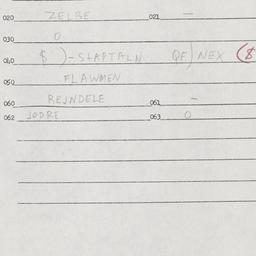 020 ZELBE 021 —
030 O
040 $ )-STAPTALN QF) NEX ($
050 FLAWMEN
060 REJNDELE 061 -
062 JODRE 063 O